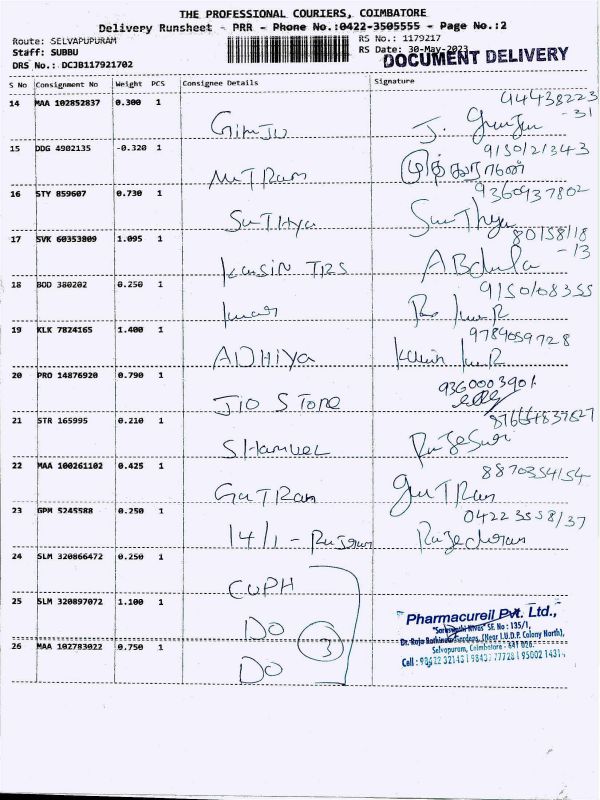 THE PROFESSIONAL COURIERS, COIMBATORE
Delivery Runsheet - PRR - Phone No.:0422-3505555 - Page No.:2
Route: SELVAPUPURAM
RS No.: 1179217
Staff: SUBBU
RS Date: 30-May-2023
DOCUMENT DELIVERY
DRS No.: DCJB117921702
S No Consignment No Weight PCS Consignee Details Signature
14 MAA 102852837 0.300 1
94438223
-31
15 DDG 4902135 -0.320 1
9150121343
முத்துராமன்
16 STY 859607 0.730 1
9360937802
SuTHya
17 SVK 60353809 1.095 1
80158118
-13
ABdula
18 BOD 380202 0.250 1
9150108355
kumar
19 KLK 7824165 1.400 1
9784059728
ADHiYa
20 PRO 14876920 0.790 1
9360003901
Jio STone
21 STR 165995 0.210 1
SHamuel
22 MAA 100261102 0.425 1
8870354154
23 GPM 5245588 0.250 1
04223558137
14/1 -
24 SLM 320866472 0.250 1
CUPH
25 SLM 320897072 1.100 1
DO
3
26 MAA 102783022 0.750 1
DO
Pharmacureil Pvt. Ltd.,
SF No : 135/1,
(Near I.U.D.P. Colony North),
Selvapuram, Coimbatore - 641 026.
Cell :